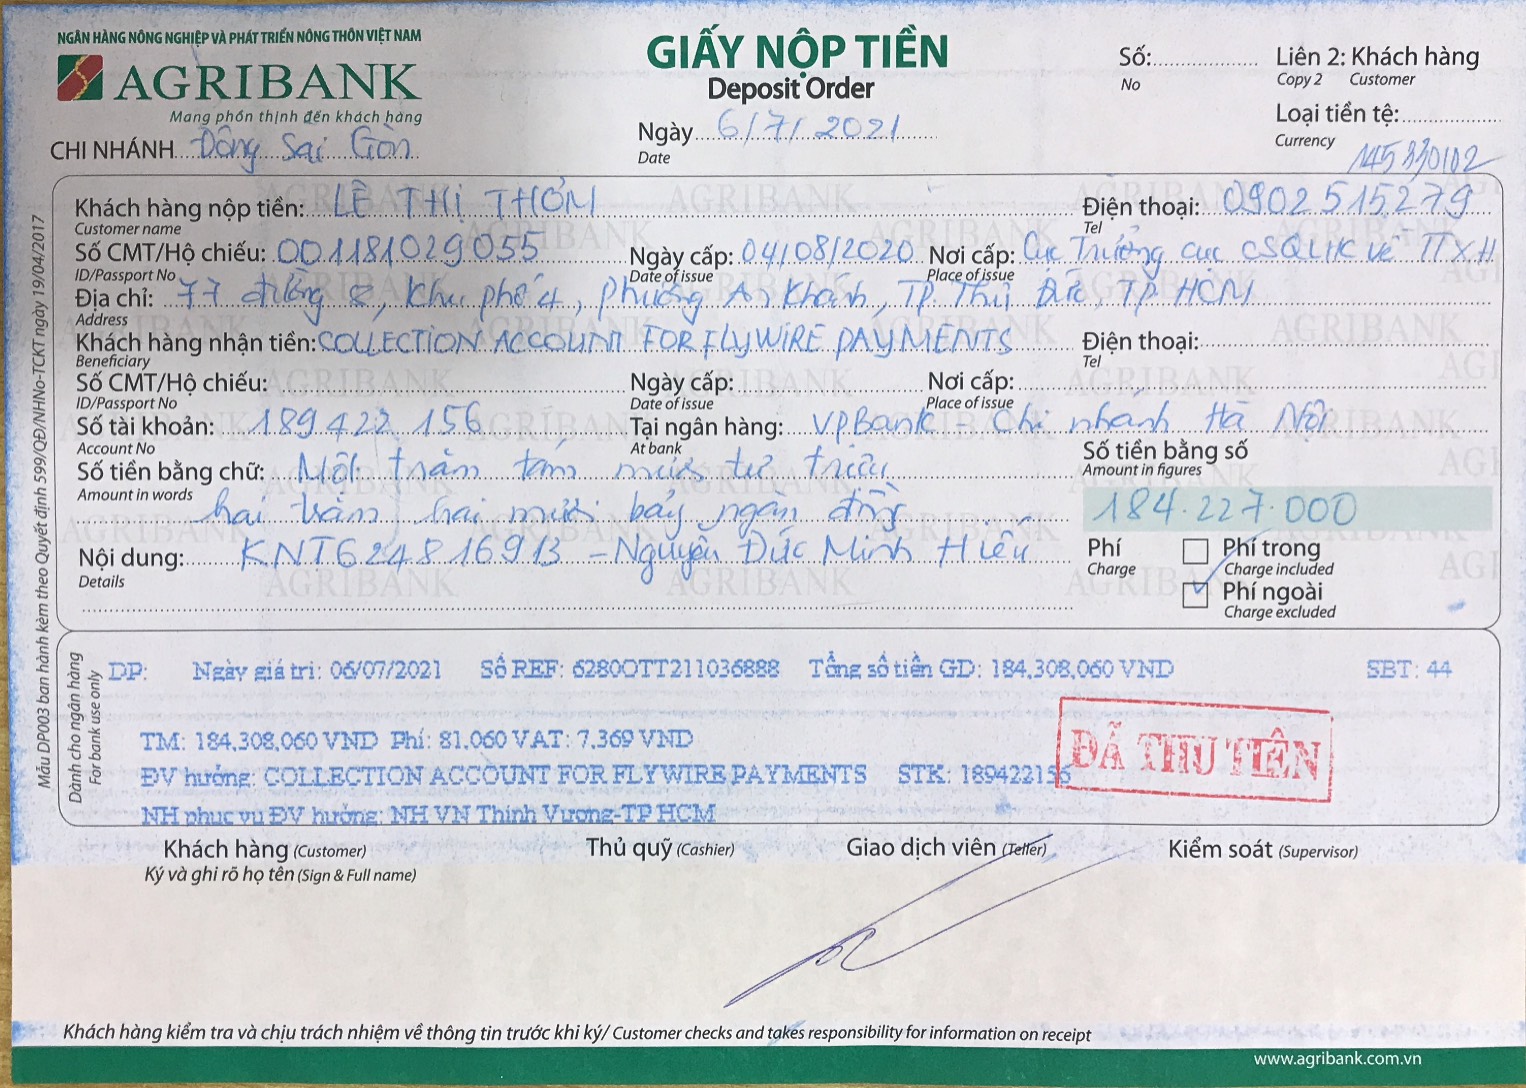 NGÂN HÀNG NÔNG NGHIỆP VÀ PHÁT TRIỂN NÔNG THÔN VIỆT NAM
AGRIBANK
Mang phồn thịnh đến khách hàng
CHI NHÁNH Đông Sài Gòn
GIẤY NỘP TIỀN
Deposit Order
Ngày 6/7/2021
Date
Số:
No
Liên 2: Khách hàng
Copy 2 Customer
Loại tiền tệ:
Currency
145330102
Khách hàng nộp tiền: LÊ THỊ THƠM Điện thoại: 0902515279
Customer name Tel
Số CMT/Hộ chiếu: 001181029055 Ngày cấp: 04/08/2020 Nơi cấp: Cục Trưởng cục CSQLHC về TTXH
ID/Passport No Date of issue Place of issue
Địa chỉ: 77 đường 8, Khu phố 4, Phường An Khánh, TP. Thủ Đức, TP HCM
Address
Khách hàng nhận tiền: COLLECTION ACCOUNT FOR FLYWIRE PAYMENTS Điện thoại:
Beneficiary Tel
Số CMT/Hộ chiếu: Ngày cấp: Nơi cấp:
ID/Passport No Date of issue Place of issue
Số tài khoản: 189422156 Tại ngân hàng: VPBank - Chi nhánh Hà Nội
Account No At bank
Số tiền bằng chữ: Một trăm tám mươi tư triệu
Amount in words
hai trăm hai mươi bảy ngàn đồng
Số tiền bằng số
Amount in figures
184.227.000
Nội dung: KNT624816913 - Nguyễn Đức Minh Hiếu
Details
Phí
Charge
Phí trong
Charge included
Phí ngoài
Charge excluded
Mẫu DP003 ban hành kèm theo Quyết định 599/QĐ/NHNo-TCKT ngày 19/04/2017
Dành cho ngân hàng
For bank use only
DP: Ngày giá trị: 06/07/2021 Số REF: 6280OTT211036888 Tổng số tiền GD: 184,308,060 VND SBT: 44
TM: 184,308,060 VND Phí: 81.060 VAT: 7,369 VND
ĐV hưởng: COLLECTION ACCOUNT FOR FLYWIRE PAYMENTS STK: 189422156
NH phục vụ ĐV hưởng: NH VN Thịnh Vượng-TP HCM
ĐÃ THU TIỀN
Khách hàng (Customer) Thủ quỹ (Cashier) Giao dịch viên (Teller) Kiểm soát (Supervisor)
Ký và ghi rõ họ tên (Sign & Full name)
Khách hàng kiểm tra và chịu trách nhiệm về thông tin trước khi ký/ Customer checks and takes responsibility for information on receipt
www.agribank.com.vn